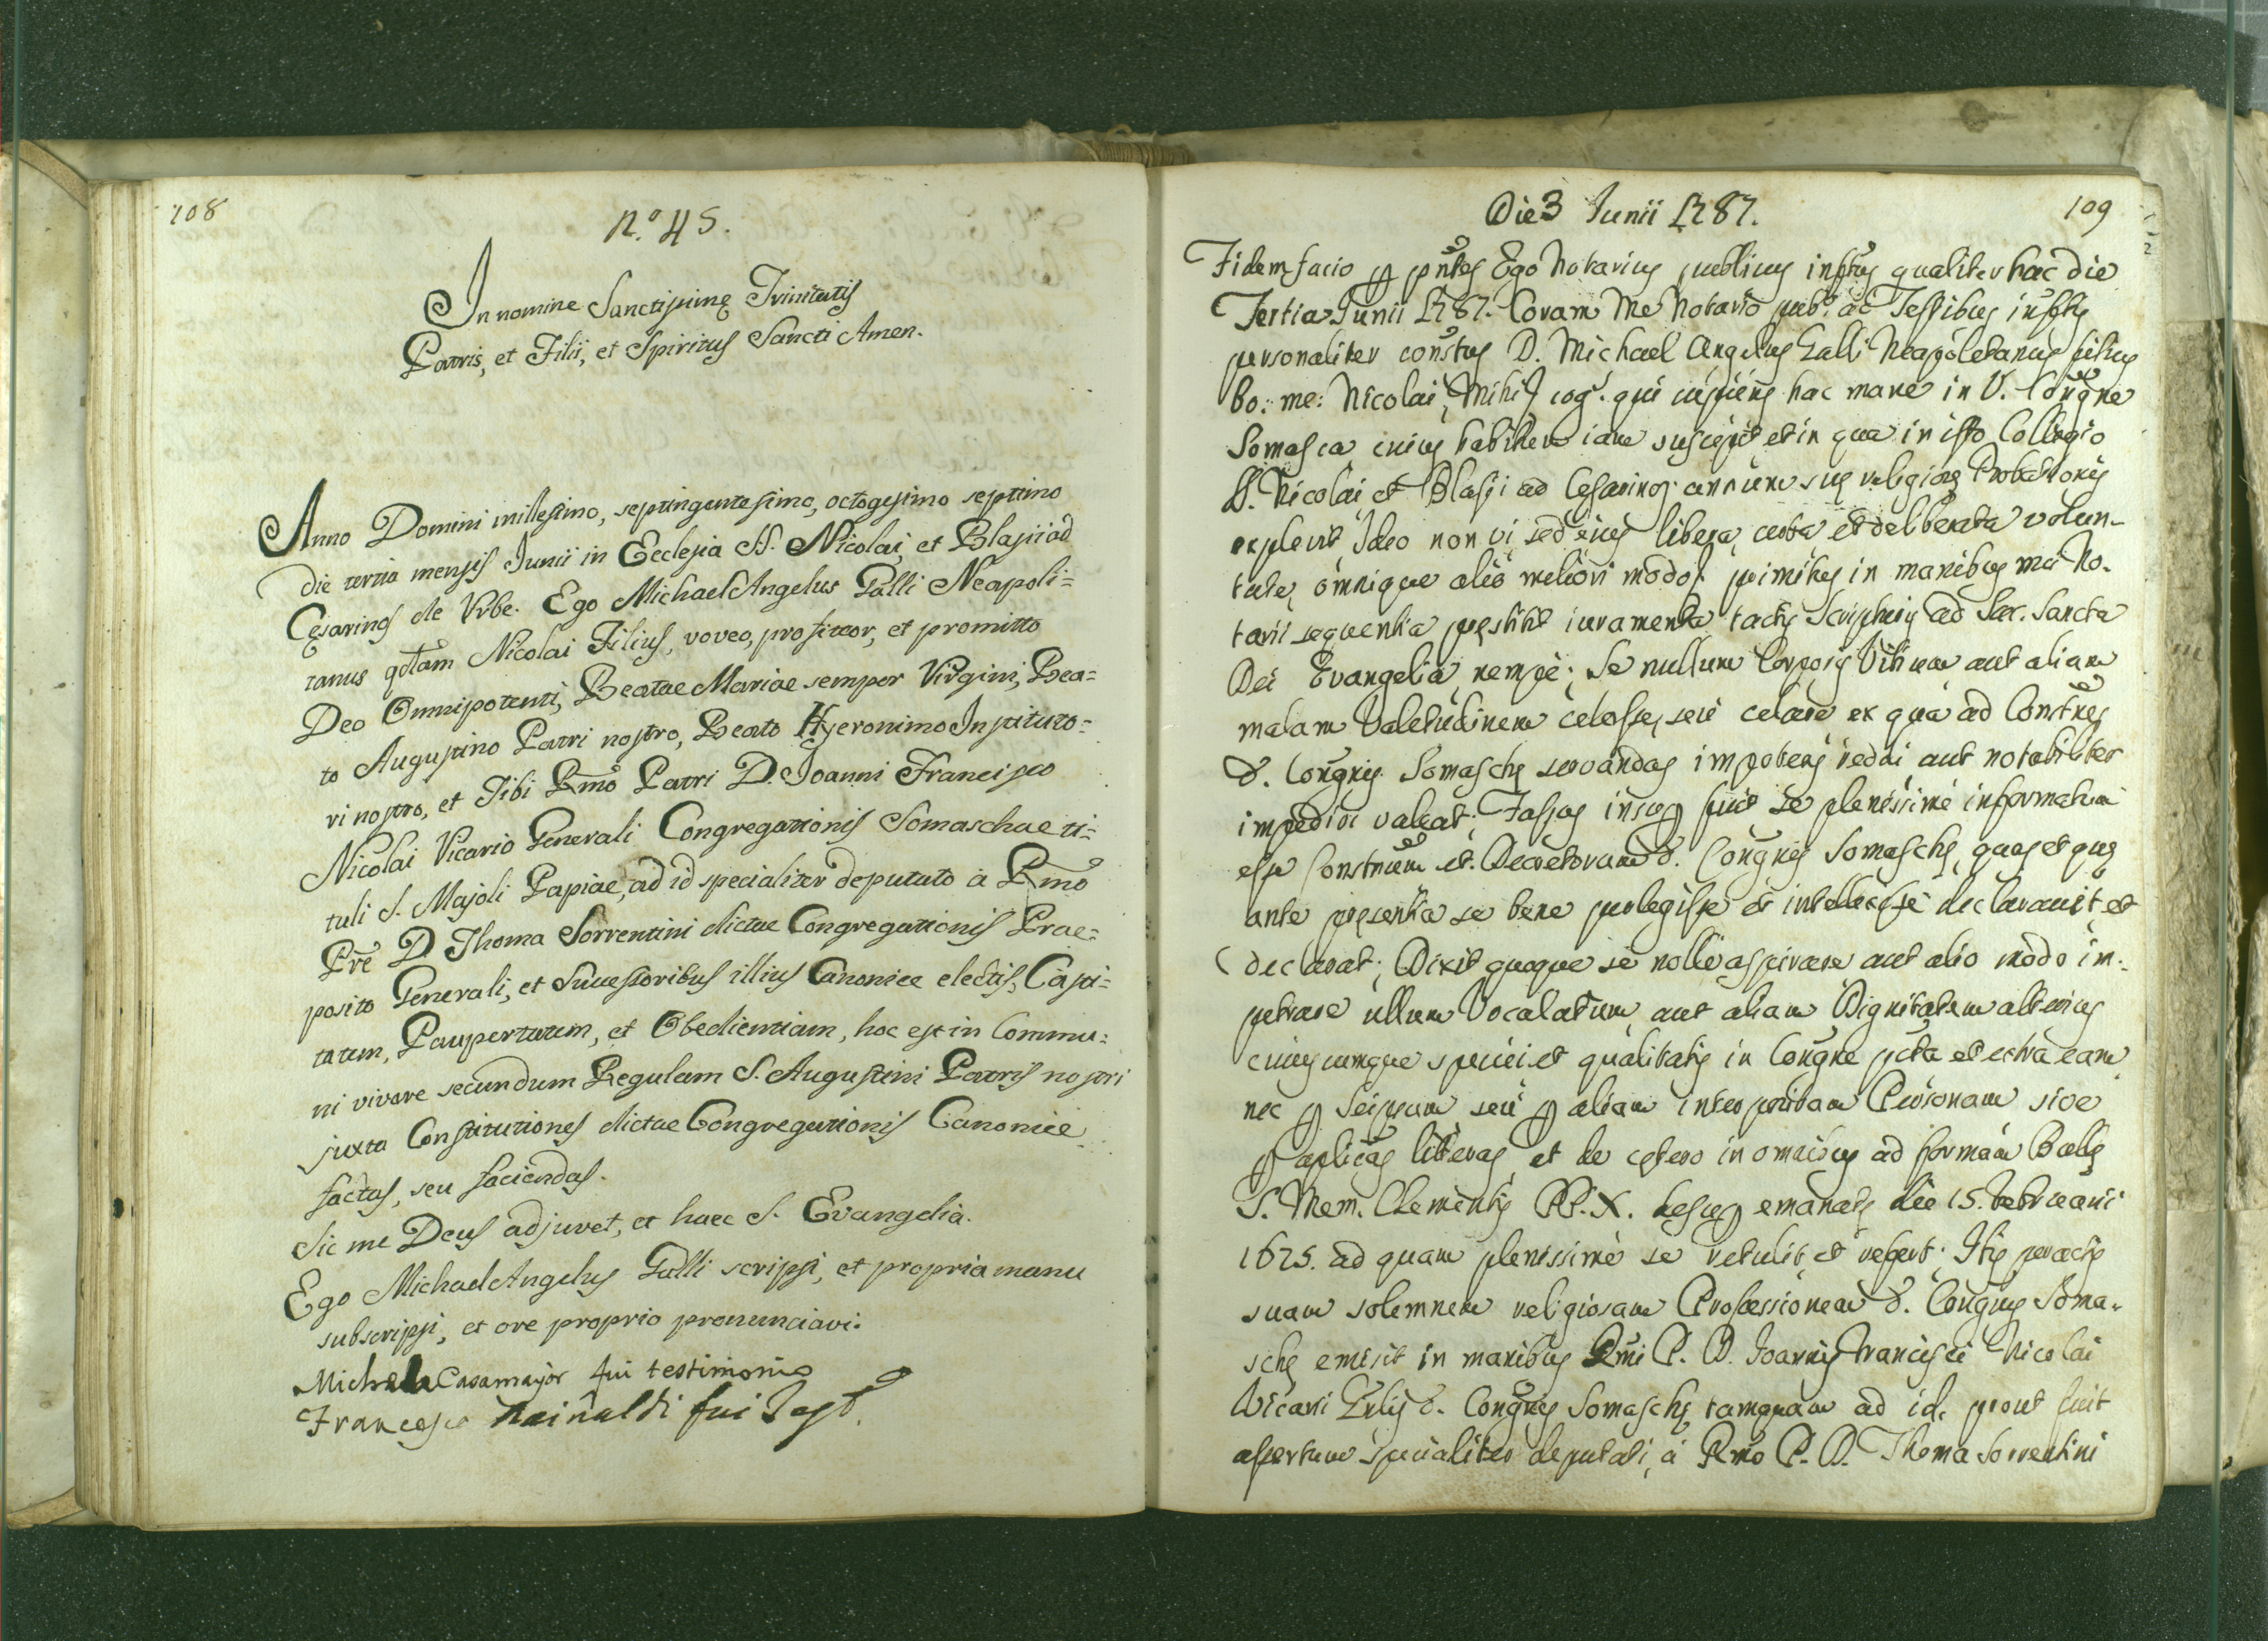 108
N.º 45.
In nomine Sanctissimę Trinitatis
Patris, et Filii, et Spiritus Sancti Amen.
Anno Domini millesimo, septingentesimo, octogesimo septimo
die tertia mensis Junii in Ecclesia SS. Nicolai, et Blasii ad
Cęsarinos de Vrbe. Ego Michael Angelus Galli Neapoli=
tanus qdtam Nicolai Filius, voveo, profiteor, et promitto
Deo Omnipotenti, Beatae Mariae semper Virgini, Bea=
to Augustino Patri nostro, Beato Hyeronimo Instituto=
ri nostro, et Tibi Rmo Patri D. Joanni Francisco
Nicolai Vicario Generali Congregationis Somaschae ti=
tuli S. Majoli Papiae, ad id specialiter deputato à Rmo
Pre D Thoma Sorrentini dictae Congregationis Prae=
posito Generali, et Successoribus illius Canonice electis, Casti=
tatem, Paupertatem, et Obedientiam, hoc est in Commu=
ni vivere secundum Regulam S. Augustini Patris nostri
juxta Constitutiones dictae Congregationis Canonice
factas, seu faciendas.
Sic me Deus adjuvet, et haec S. Evangelia.
Ego Michael Angelus Galli scripsi, et propria manu
subscripsi, et ore proprio pronunciavi.
Michele Casamayor fui testimonio
Francesco Rainaldi fui Test.
109
Die 3 Junii 1787.
Fidem facio p pntes Ego Notarius publicus inftus qualiter hac die
Tertia Junii 1787. Coram Me Notario pub.º ac Testibus inftis
personaliter constus D. Michael Angelus Galli Neapoletanus filius
bo: me: Nicolai, Mihi cog. qui cupiens hac mane in V. Congne
Somasca cuius habitum iam suscepit et in qua in isto Collegio
SS. Nicolai et Blasii ad Cesarinos annum suę religiosę Probationis
explevit, Ideo non vi sed eius libera, certa et deliberata volun-
tate, omnique alio meliori modo primitus in manibus mei No-
tarii sequentia pręstitit iuramenta tactis Scripturis ad Sac. Sancta
Dei Evangelia, nempè; Se nullum Corporis Vitium aut aliam
malam Valetudinem celasse, seù celare ex qua ad Constnes
d. Congnis Somaschę servandas impotens reddi aut notabiliter
impediri valeat; Fassus insup fuit se plenissimè informatum
esse Constnum et Decretorum d. Congnis Somaschę, quas et quę
ante pręsentia se bene perlegisse et intellexisse declaravit et
declarat; Dixit quoque se nolle aspirare aut alio modo im-
petrare ullum Vocalatum, aut aliam Dignitatem alterius
cuiuscumque speciei et qualitatis in Congne pcta et extra eam
nec p Seipsum seù p aliam interpositam Personam sive
p aplicas litteras, et de cętero in omnibus ad formam Bullę
S. Mem. Clementis PP. X. desup emanatę die 15. Februarii
1675. ad quam plenissimè se retulit et refert. Itis peractis
suam solemnem religiosam Professionem d. Congnis Soma-
schę emisit in manibus Rmi P. D. Joannis Francisci Nicolai
Vicarii Gnlis d. Congnis Somaschę tamquam ad id, prout fuit
assertum specialiter deputati, à Rmo P. D. Thoma Sorrentini